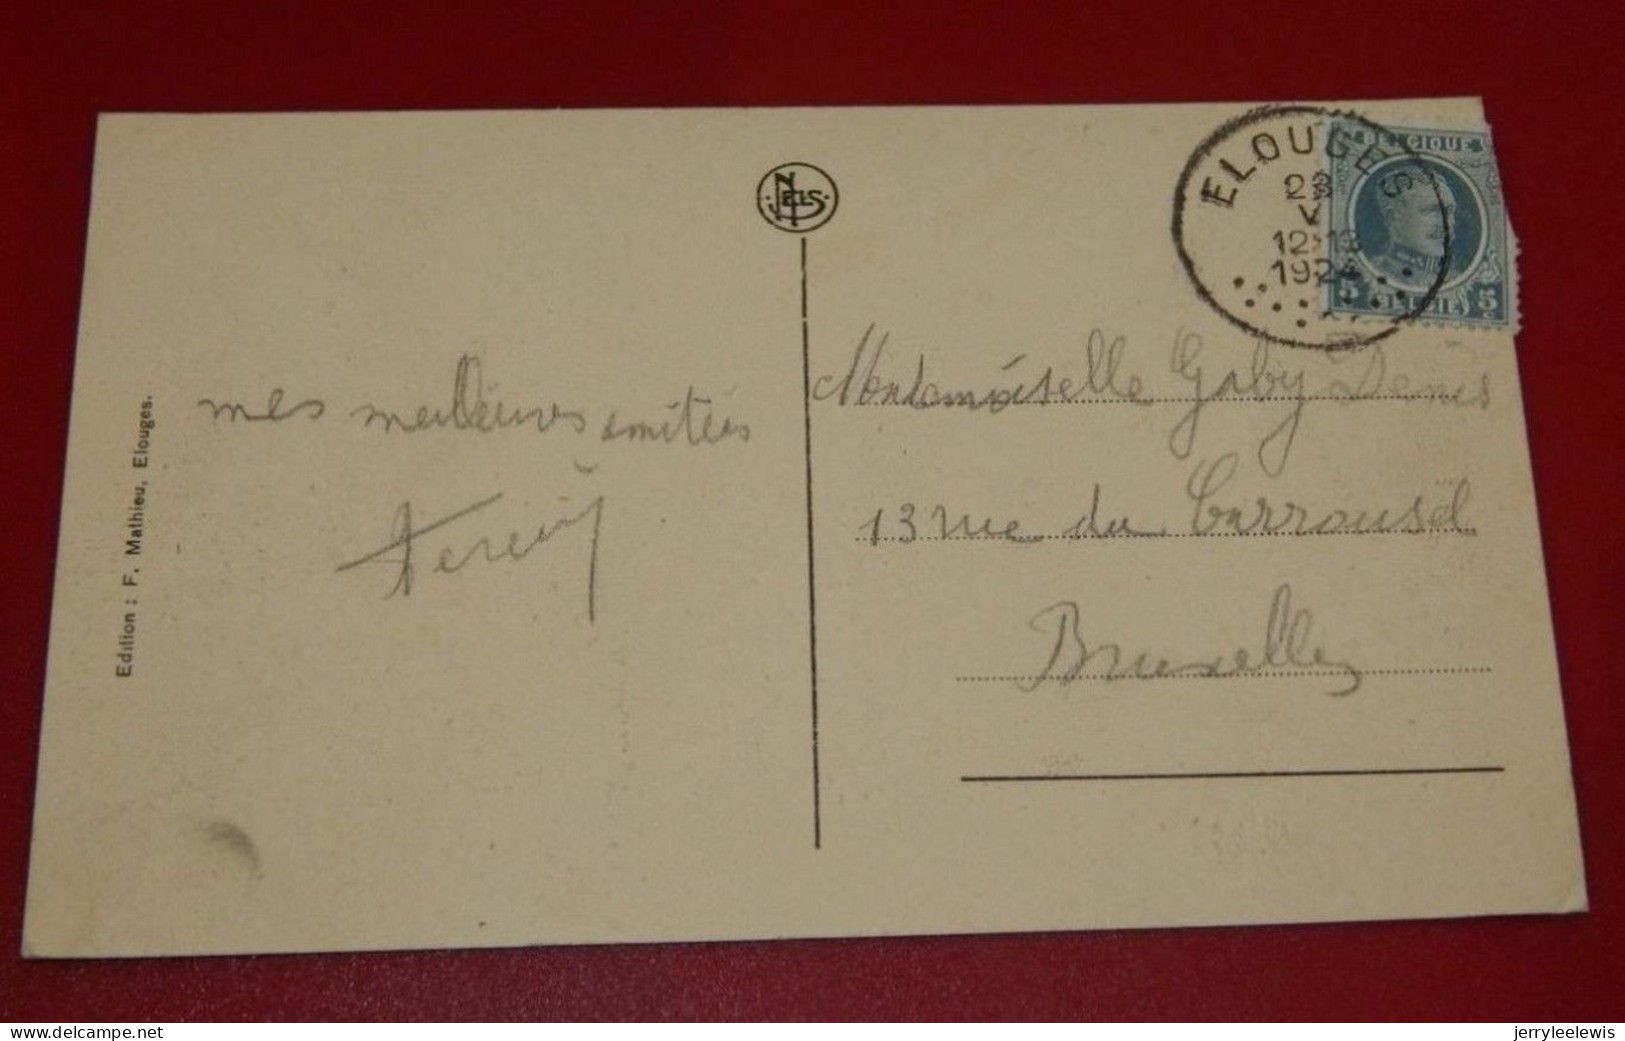 Edition : F. Mathieu, Elouges.
NELS
ELOUGES
23
V
12-13
1924
BELGIQUE
5 BELGIE 5
mes meilleures amitiés
Mademoiselle Gaby Denis
13 rue du Carrousel
Bruxelles
www.delcampe.net
jerryleelewis